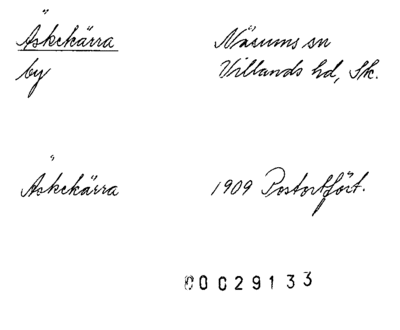 Äskekärra Näsums sn
by Villands hd, Sk.
Äskekärra 1909 Postortfört.
00029133